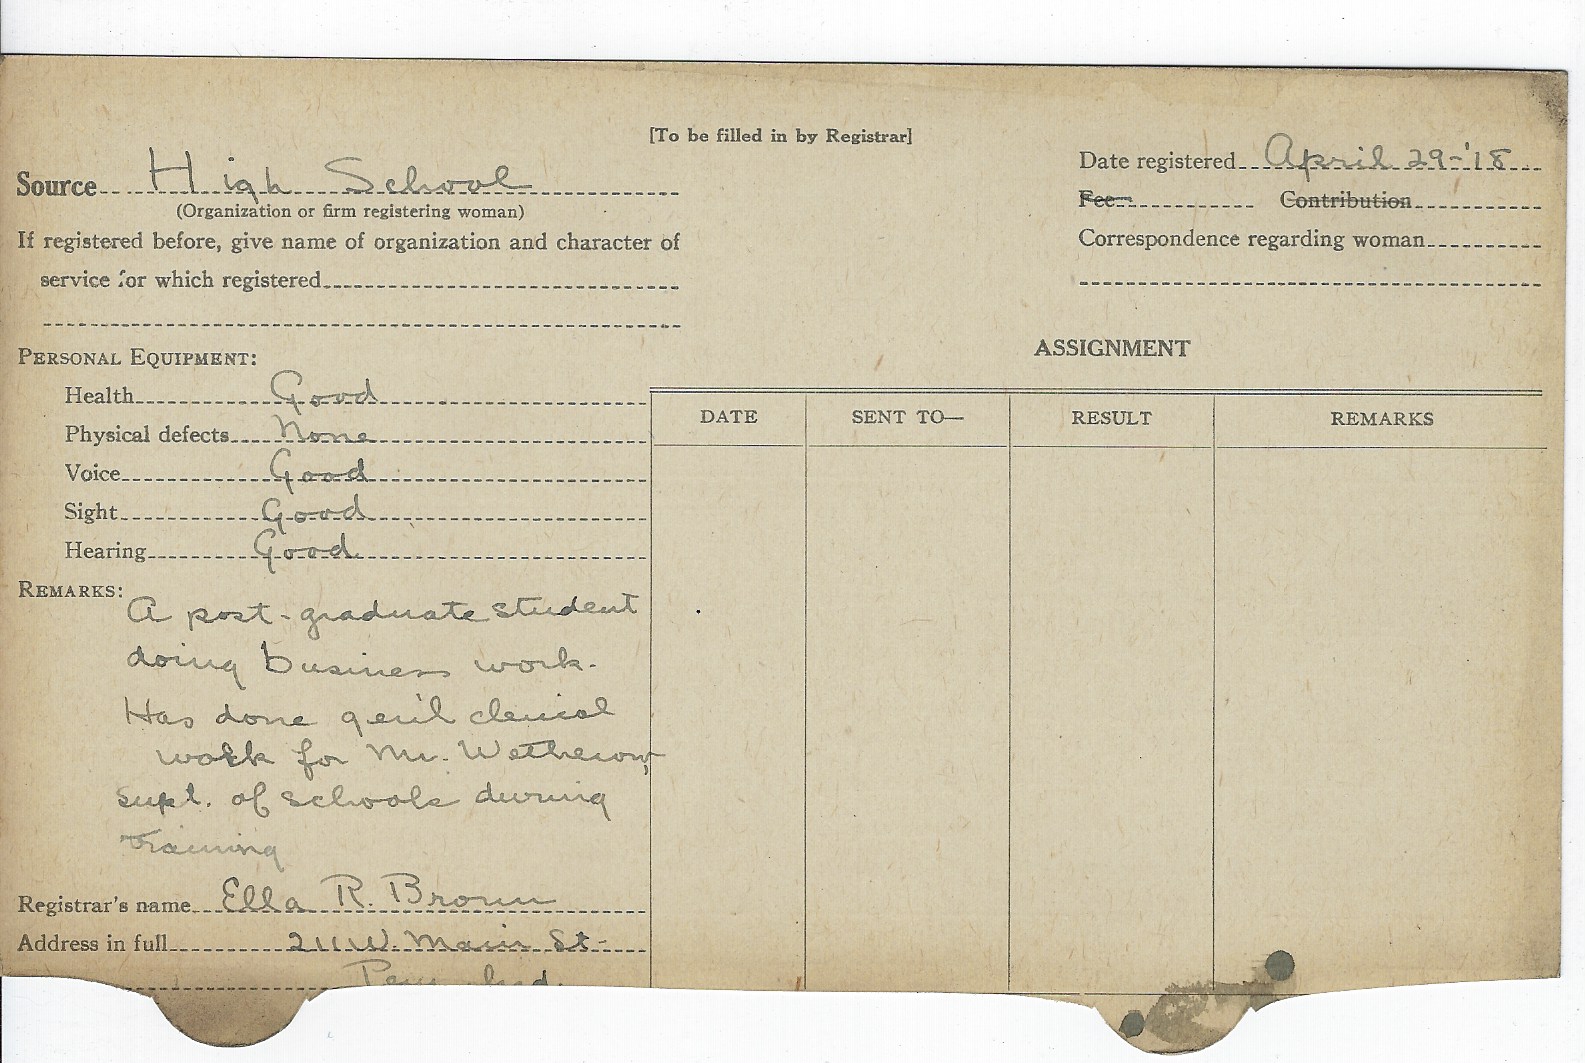 [To be filled in by Registrar]
Source High School
(Organization or firm registering woman)
If registered before, give name of organization and character of
service for which registered
Date registered April 29-'18
Fee Contribution
Correspondence regarding woman
PERSONAL EQUIPMENT:
Health Good
Physical defects None
Voice Good
Sight Good
Hearing Good
REMARKS:
A post-graduate student
doing business work.
Has done gen'l clerical
work for Mr. Wetherow,
supt. of schools during
training
Registrar's name Ella R. Brown
Address in full 211 W. Main St-
Peru Ind.
ASSIGNMENT
DATE SENT TO— RESULT REMARKS